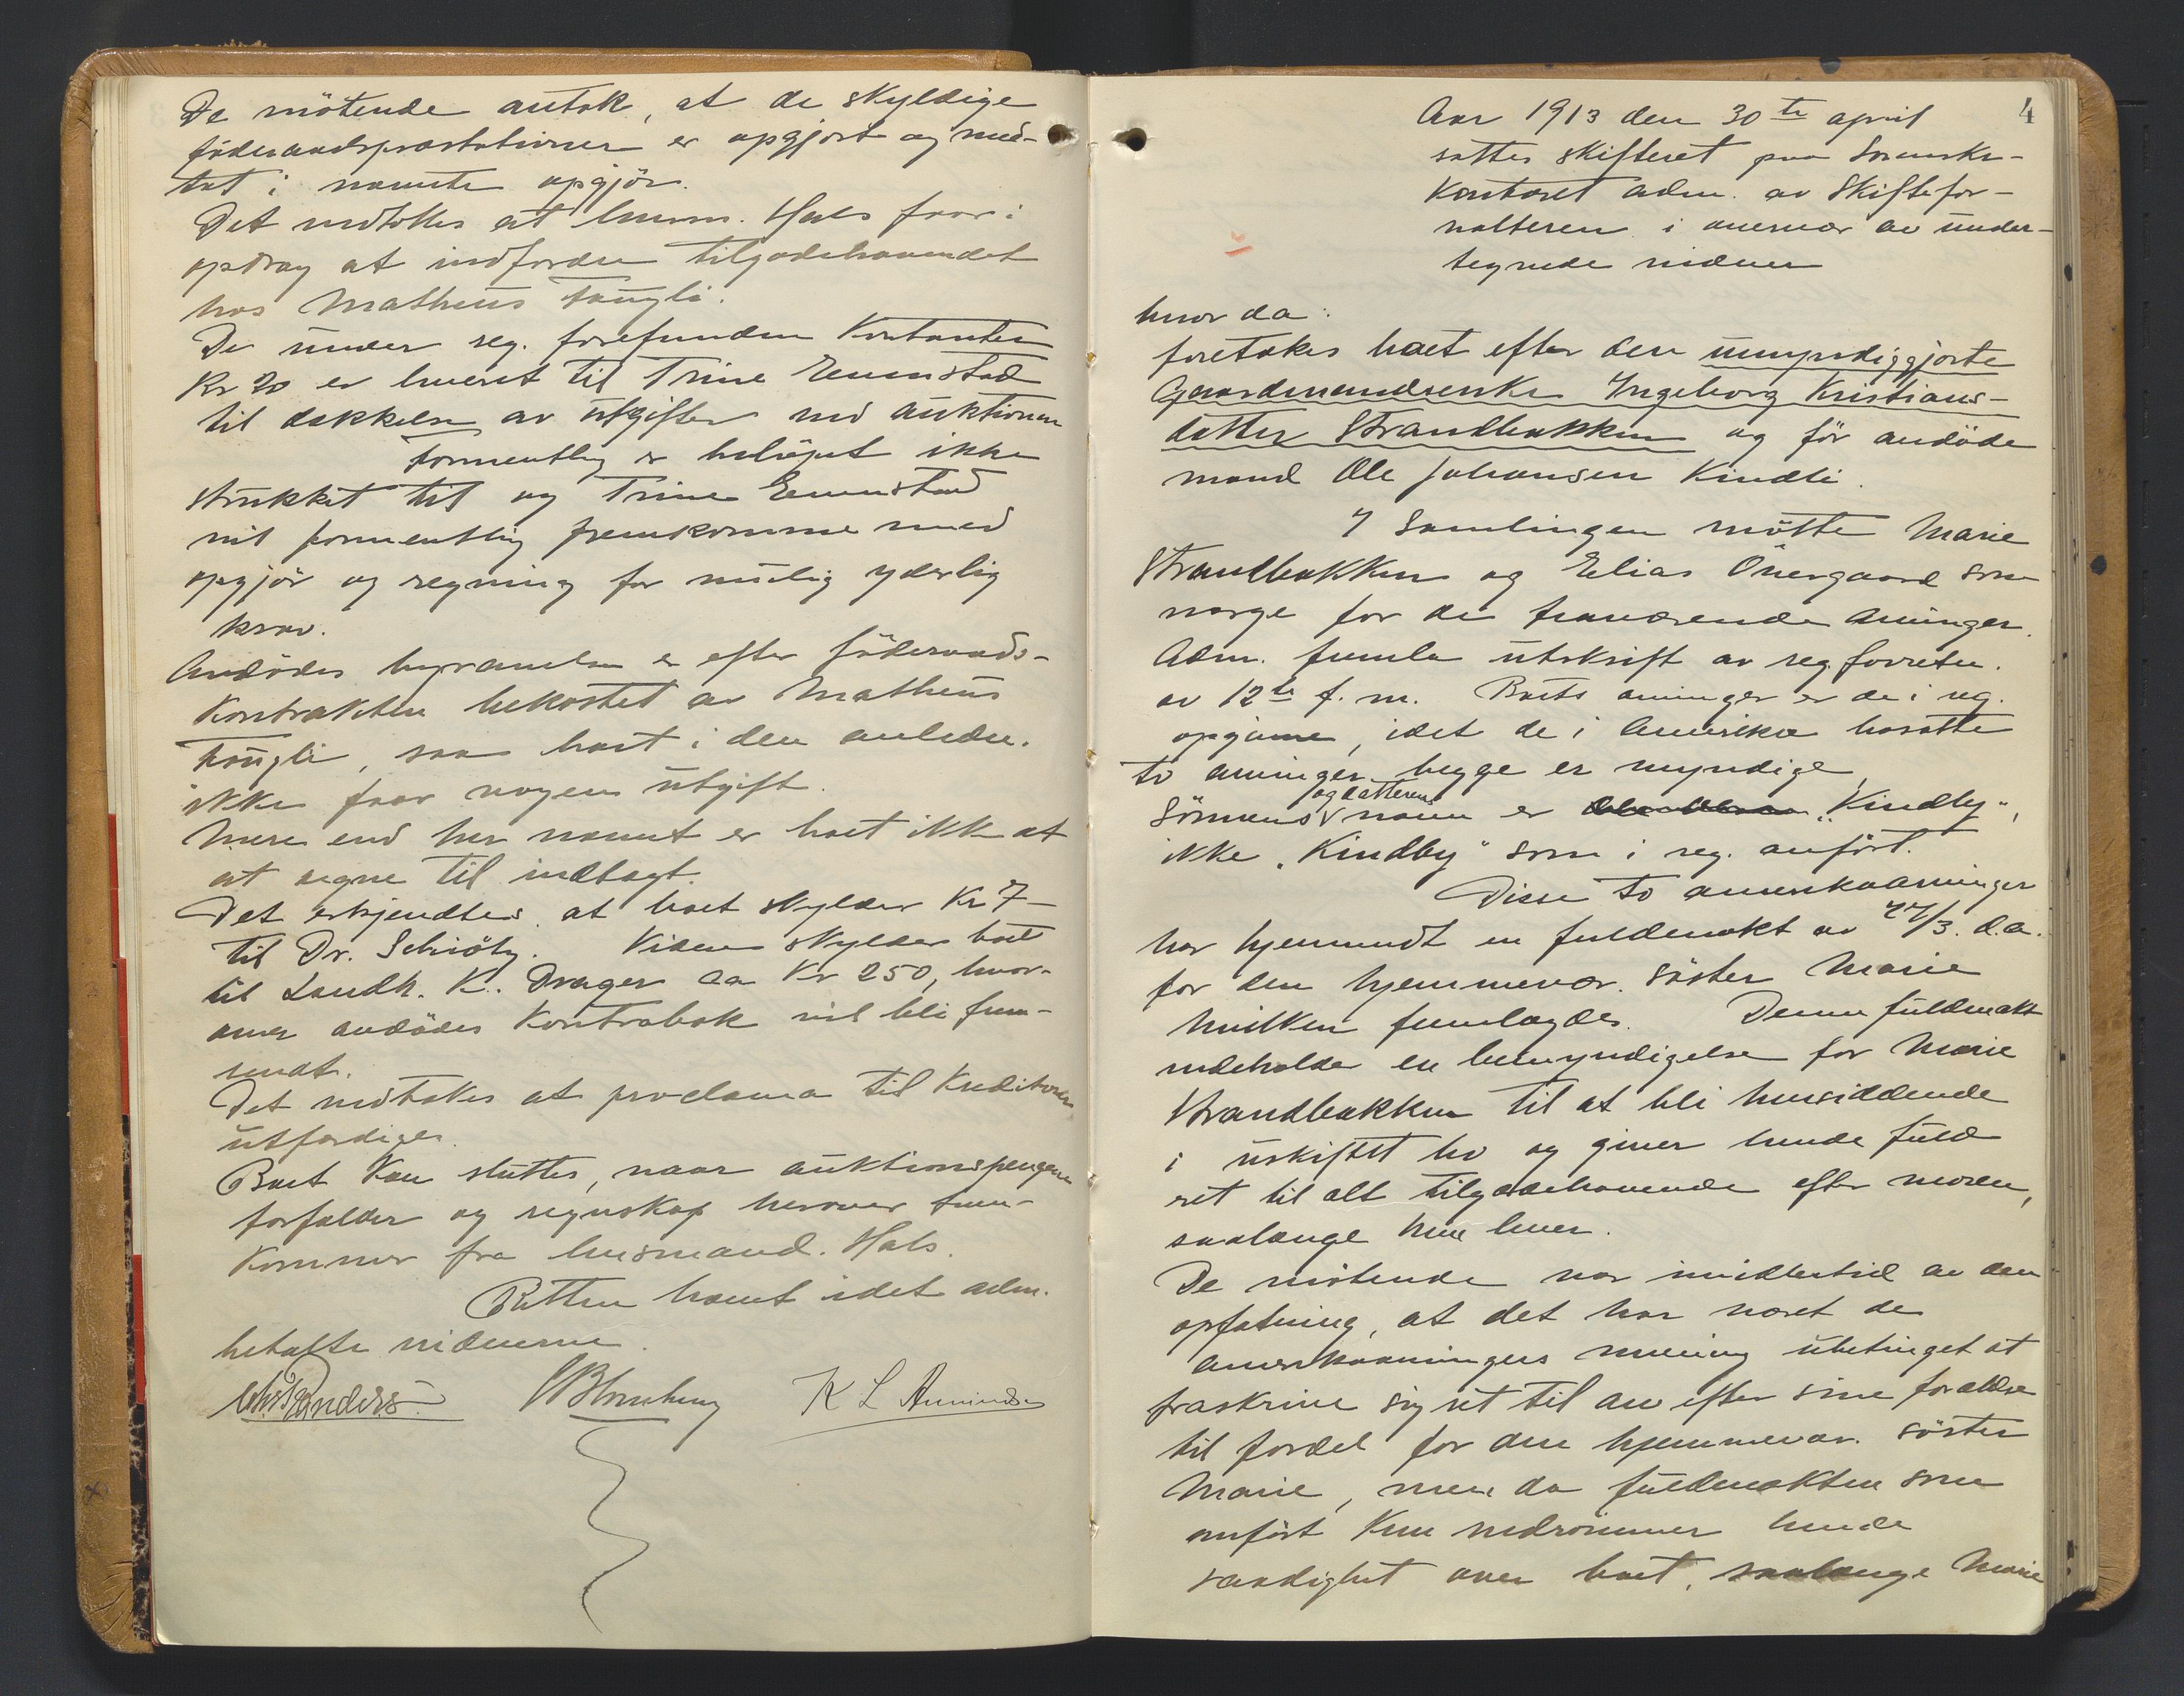 De mötende antok, at de skyldige
föderaadspræstationer er opgjort og med-
tat i nævnte opgjör.
Det vedtokes at husm. Hals faar i
opdrag at indfordre tilgodehavendet
hos Matheus Haugli.
De under reg. forefundne Kontanter
Kr 20 er leveret til Trine Evenstad
til dækkelse av utgifter ved auktionen
Formentlig er belöpet ikke
strukket til og Trine Evenstad
vil formentlig fremkomme med
opgjör og regning for mulig yderlig
krav.
Avdödes begravelse er efter föderaads-
Kontrakten bekostet av Matheus
Haugli, saa boet i den anledn.
ikke faar nogen utgift.
Mere end her nævnt er boet ikke at
at regne til indtægt.
Det erkjendtes at boet skylder Kr 7-
til Dr. Schiötz. Videre skylder boet
til Landh. K. Drager ca Kr 250, hvor-
over avdödes Kontrabok vil bli frem-
sendt.
Det vedtokes at proclama til Kreditorer
utfærdiges.
Boet kan sluttes, naar auktionspengene
forfalder og regnskap herover frem-
kommer fra husmand. Hals.
Retten hævet idet adm.
betalte vidnerne.
K L Amundsen
4
Aar 1913 den 30te april
sattes skifteret paa Sorenskr-
kontoret adm. av Skiftefor-
valteren i overvær av under-
tegnede vidner
hvor da:
foretokes boet efter den umyndiggjorte
Gaardmandsenke Ingeborg Kristians-
datter Strandbakken og för avdöde
mand Ole Johansen Kindli.
I Samlingen mötte Marie
Strandbakken og Elias Övergaard som
værge for de fraværende arvinger.
Adm. fremla utskrift av reg. forretn.
av 12te f. m. Boets arvinger er de i reg.
opgivne, idet de i Amerika bosatte
to arvinger begge er myndige
og datterens
Sönnens navn er "Kindly",
ikke "Kindby" som i reg. anfört.
Disse to amerikaarvinger
har hjemsendt en fuldmakt av 27/3. d.a.
for den hjemmevær. söster Marie
hvilken fremlagdes. Denne fuldmakt
indeholder en bemyndigelse for Marie
Strandbakken til at bli hensiddende
i uskiftet bo og giver hende fuld
ret til alt tilgodehavende efter moren,
saalænge hun lever.
De mötende var imidlertid av den
opfatning, at det har været de
amerikaarvingers mening ubetinget at
fraskrive sig ret til arv efter sine forældre
til fordel for den hjemmevær. söster
Marie, men da fuldmakten som
anfört kun indrömmer hende
raadighet over boet, saalænge Marie